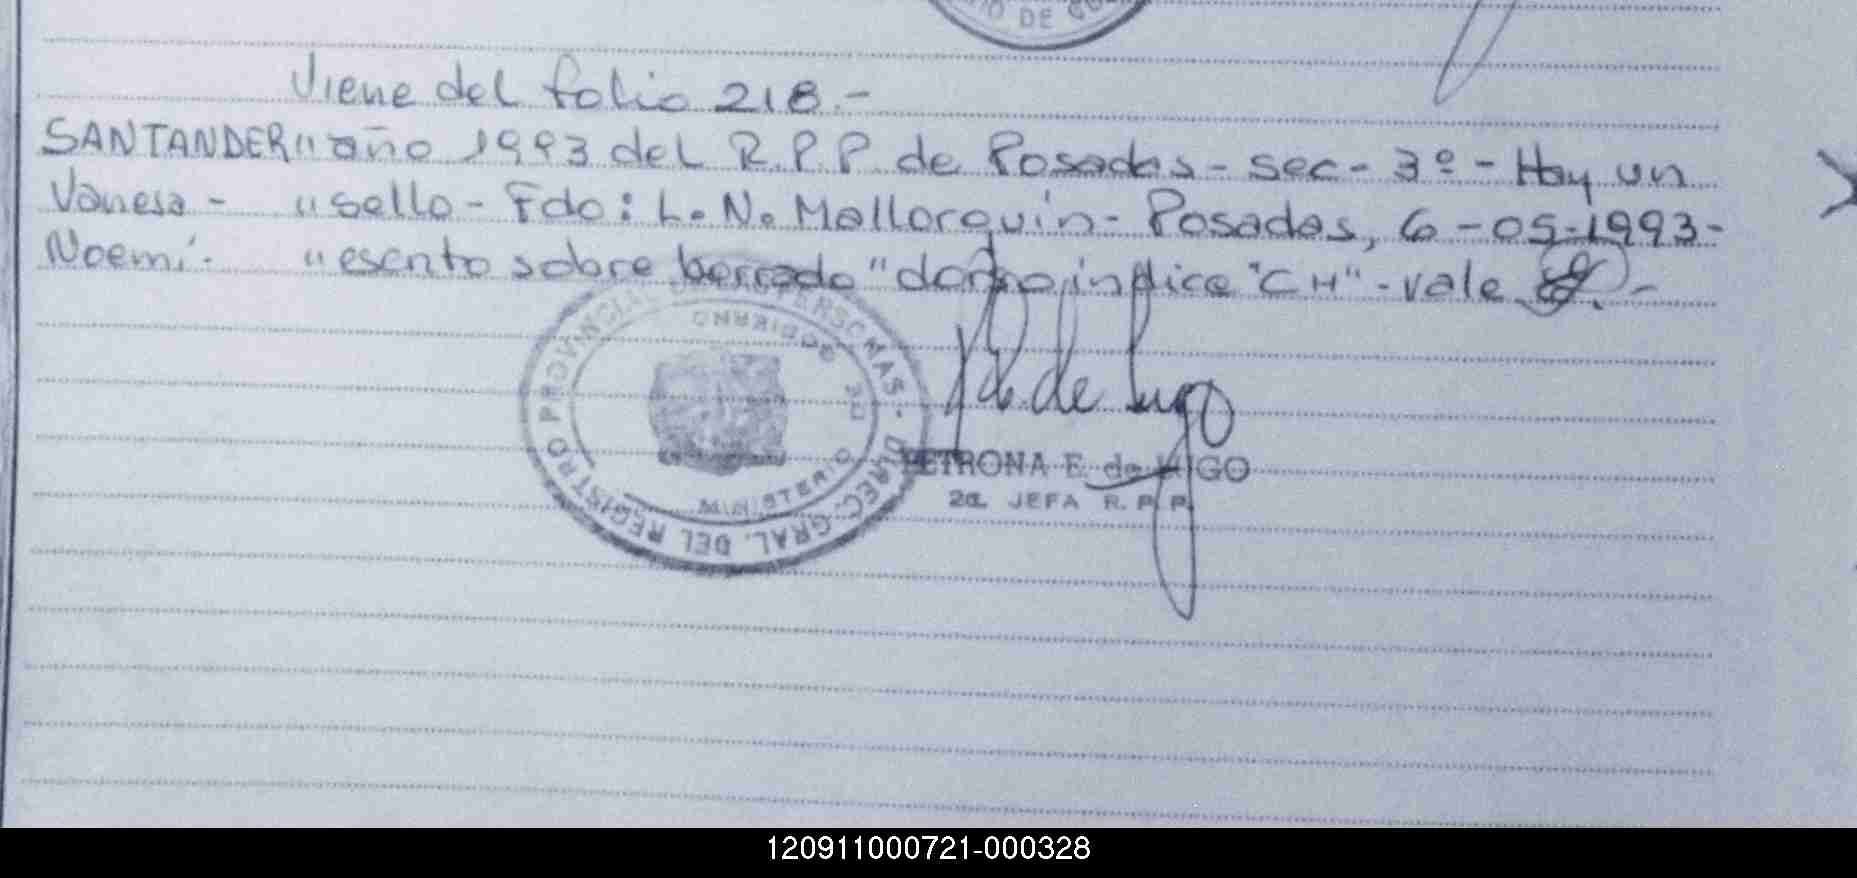 IO DE GO
Viene del folio 218.-
SANTANDER " año 1993 del R.P.P. de Posadas - sec - 3º - Hay un
Vanesa - " sello - Fdo: L. N. Mallorquín - Posadas, 6 - 05 - 1993 -
Noemí. " escrito sobre borrado " dorso, indice "CH" - vale
DIREC. GRAL. DEL REGISTRO PROVINCIAL PERSONAS -
MINISTERIO DE GOBIERNO
PETRONA E. de LUGO
2a. JEFA R. P. P.
120911000721-000328